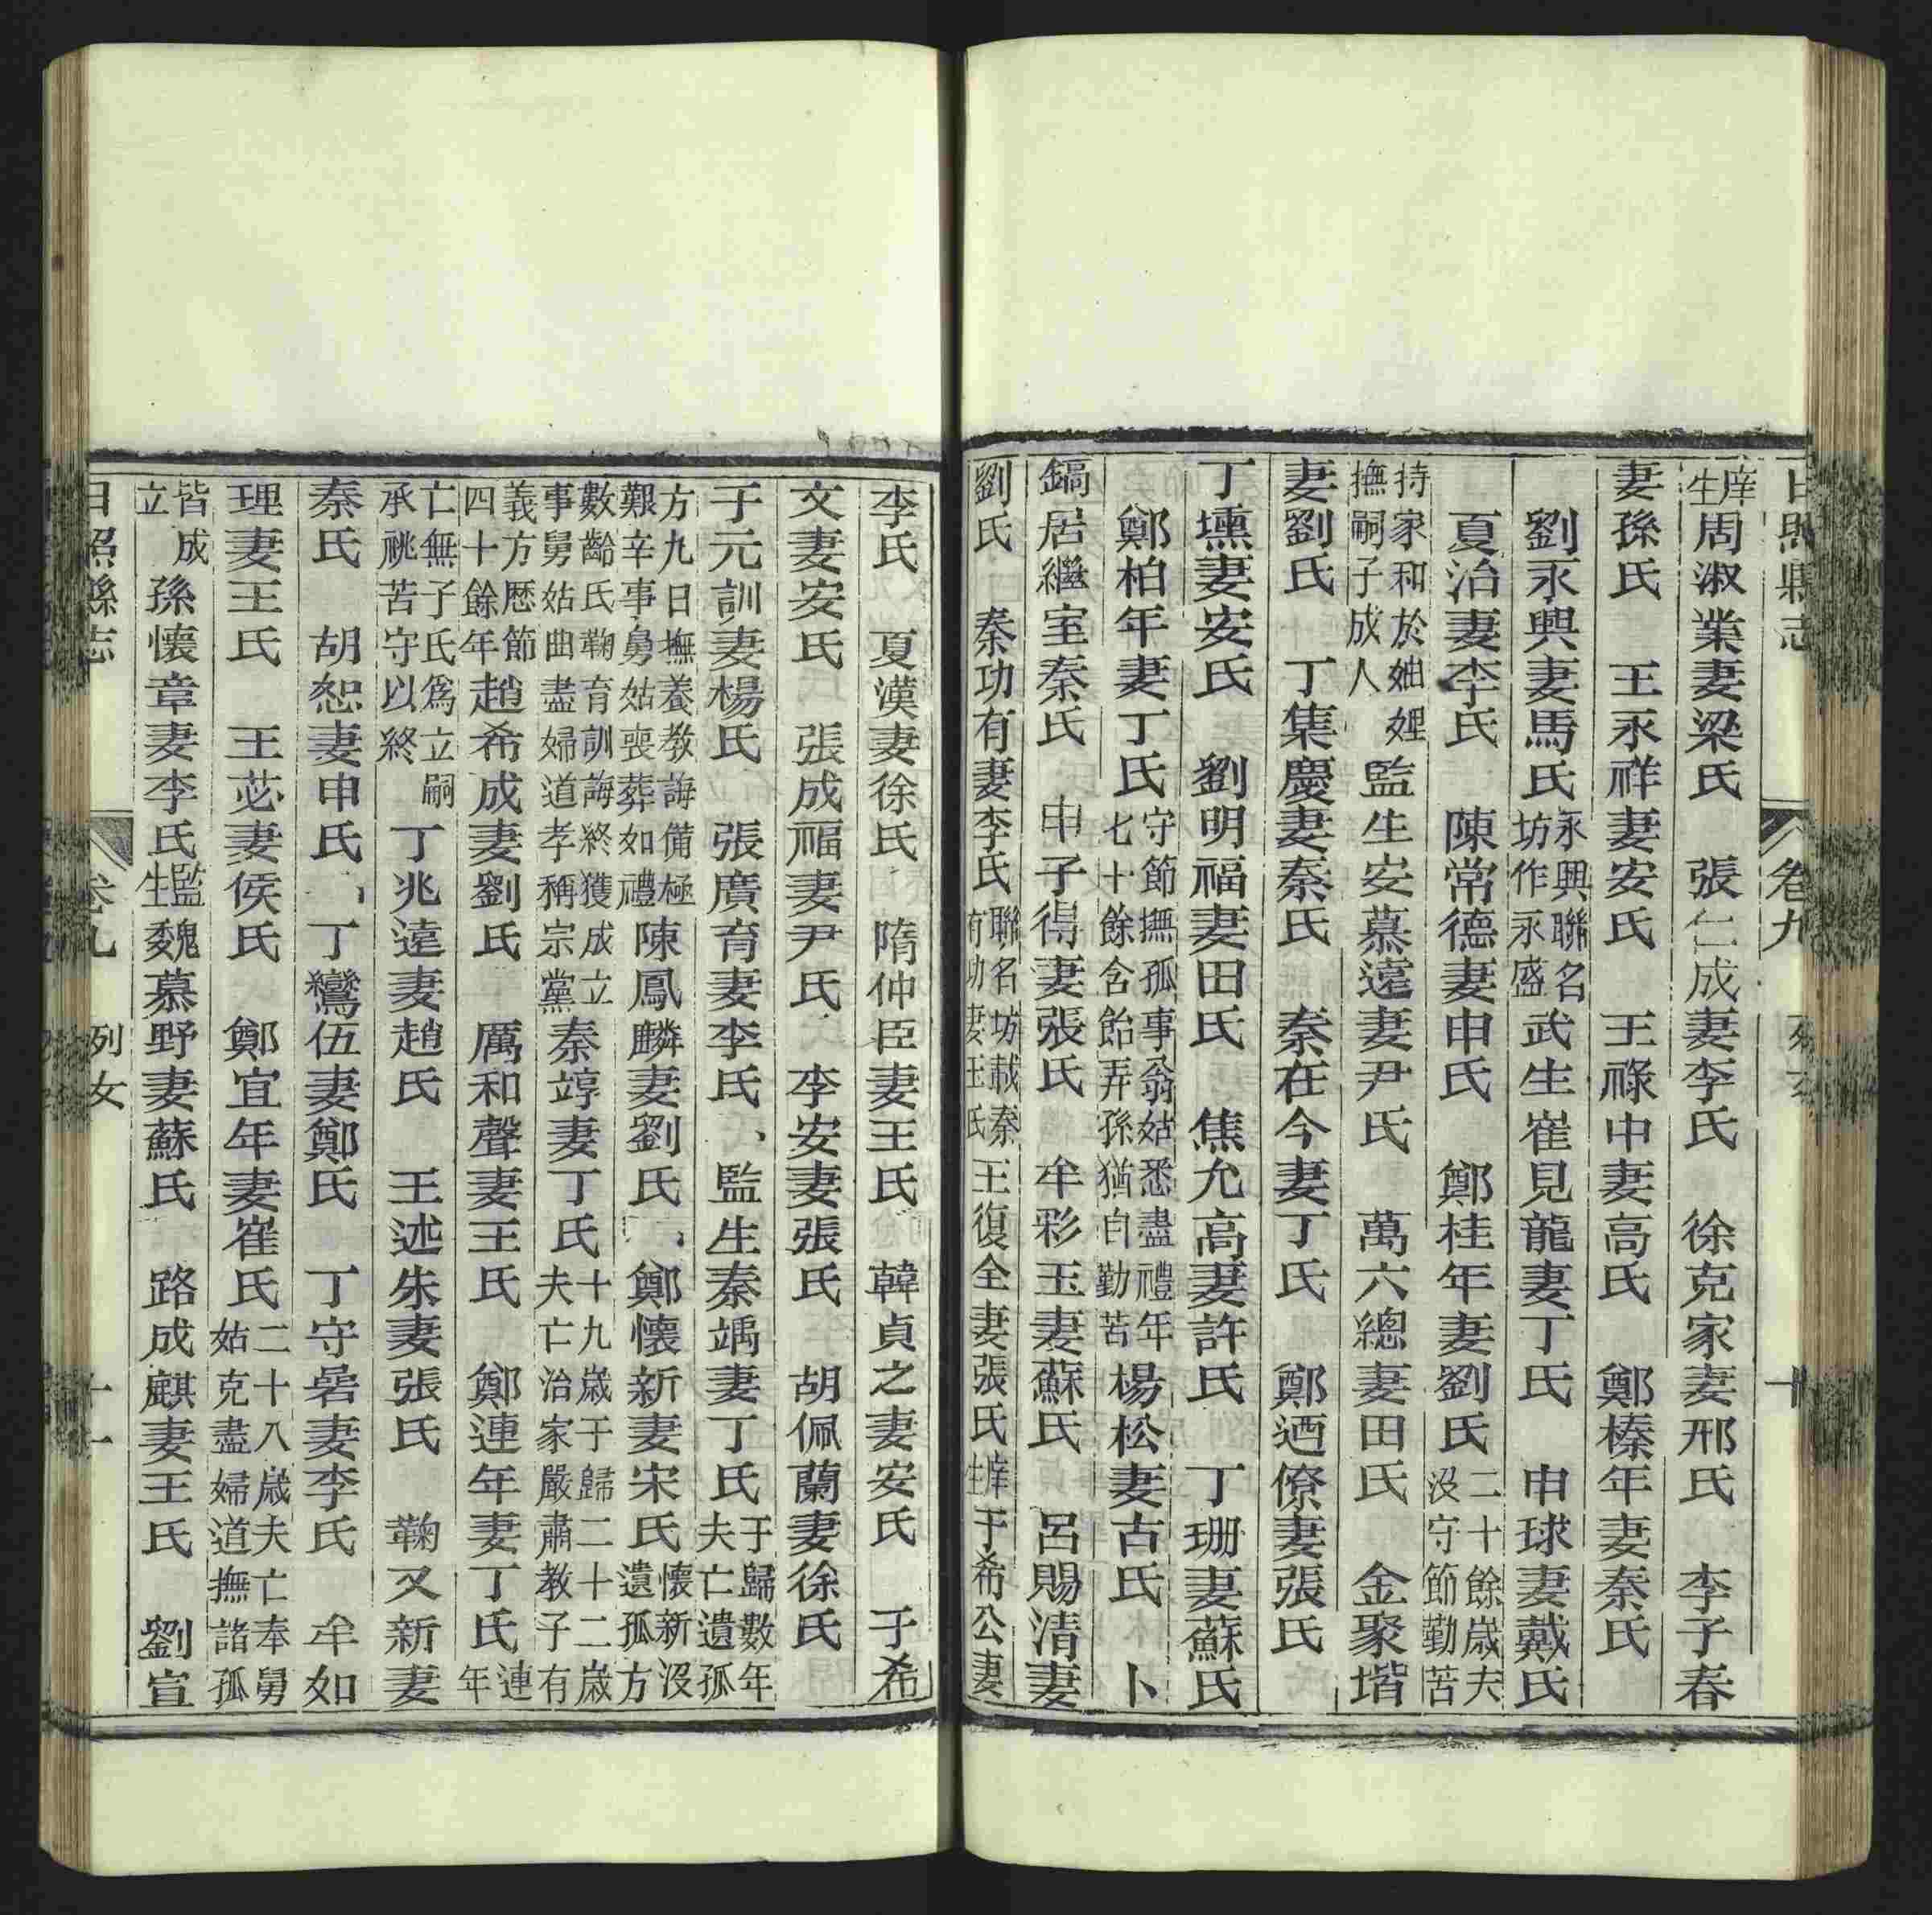 日照縣志　卷九　列女　十
庠生周淑業妻梁氏　張仁成妻李氏　徐克家妻邢氏　李子春
妻孫氏　王永祥妻安氏　王祿中妻高氏　鄭榛年妻秦氏
劉永興妻馬氏永興聯名坊作永盛　武生崔見龍妻丁氏　申球妻戴氏
夏治妻李氏　陳常德妻申氏　鄭桂年妻劉氏二十餘歲夫沒守節勤苦
持家和於妯娌撫嗣子成人　監生安慕遠妻尹氏　萬六總妻田氏　金聚堦
妻劉氏　丁集慶妻秦氏　秦在今妻丁氏　鄭迺僚妻張氏
丁壎妻安氏　劉明福妻田氏　焦允高妻許氏　丁珊妻蘇氏
鄭柏年妻丁氏守節撫孤事翁姑悉盡禮年七十餘含飴弄孫猶自勤苦　楊松妻古氏　卜
鎬居繼室秦氏　申子得妻張氏　牟彩玉妻蘇氏　呂賜清妻
劉氏　秦功有妻李氏聯名坊載秦有功妻王氏　王復全妻張氏　庠生于希公妻
李氏　夏漢妻徐氏　隋仲臣妻王氏　韓貞之妻安氏　于希
文妻安氏　張成福妻尹氏　李安妻張氏　胡佩蘭妻徐氏
于元訓妻楊氏　張廣育妻李氏　監生秦竬妻丁氏于歸數年夫亡遺孤
方九日撫養教誨備極艱辛事舅姑喪葬如禮　陳鳳麟妻劉氏　鄭懷新妻宋氏懷新沒遺孤方
數齡氏鞠育訓誨終獲成立事舅姑曲盡婦道孝稱宗黨　秦竴妻丁氏十九歲于歸二十二歲夫亡治家嚴肅教子有
義方歷節四十餘年　趙希成妻劉氏　厲和聲妻王氏　鄭連年妻丁氏連年
亡無子氏為立嗣承祧苦守以終　丁兆遠妻趙氏　王述朱妻張氏　鞠又新妻
秦氏　胡恕妻申氏　丁鸞伍妻鄭氏　丁守礐妻李氏　牟如
理妻王氏　王苾妻侯氏　鄭宜年妻崔氏二十八歲夫亡奉舅姑克盡婦道撫諸孤
皆成立　孫懷章妻李氏　監生魏慕野妻蘇氏　路成麒妻王氏　劉宣
日照縣志　卷九　列女　十一